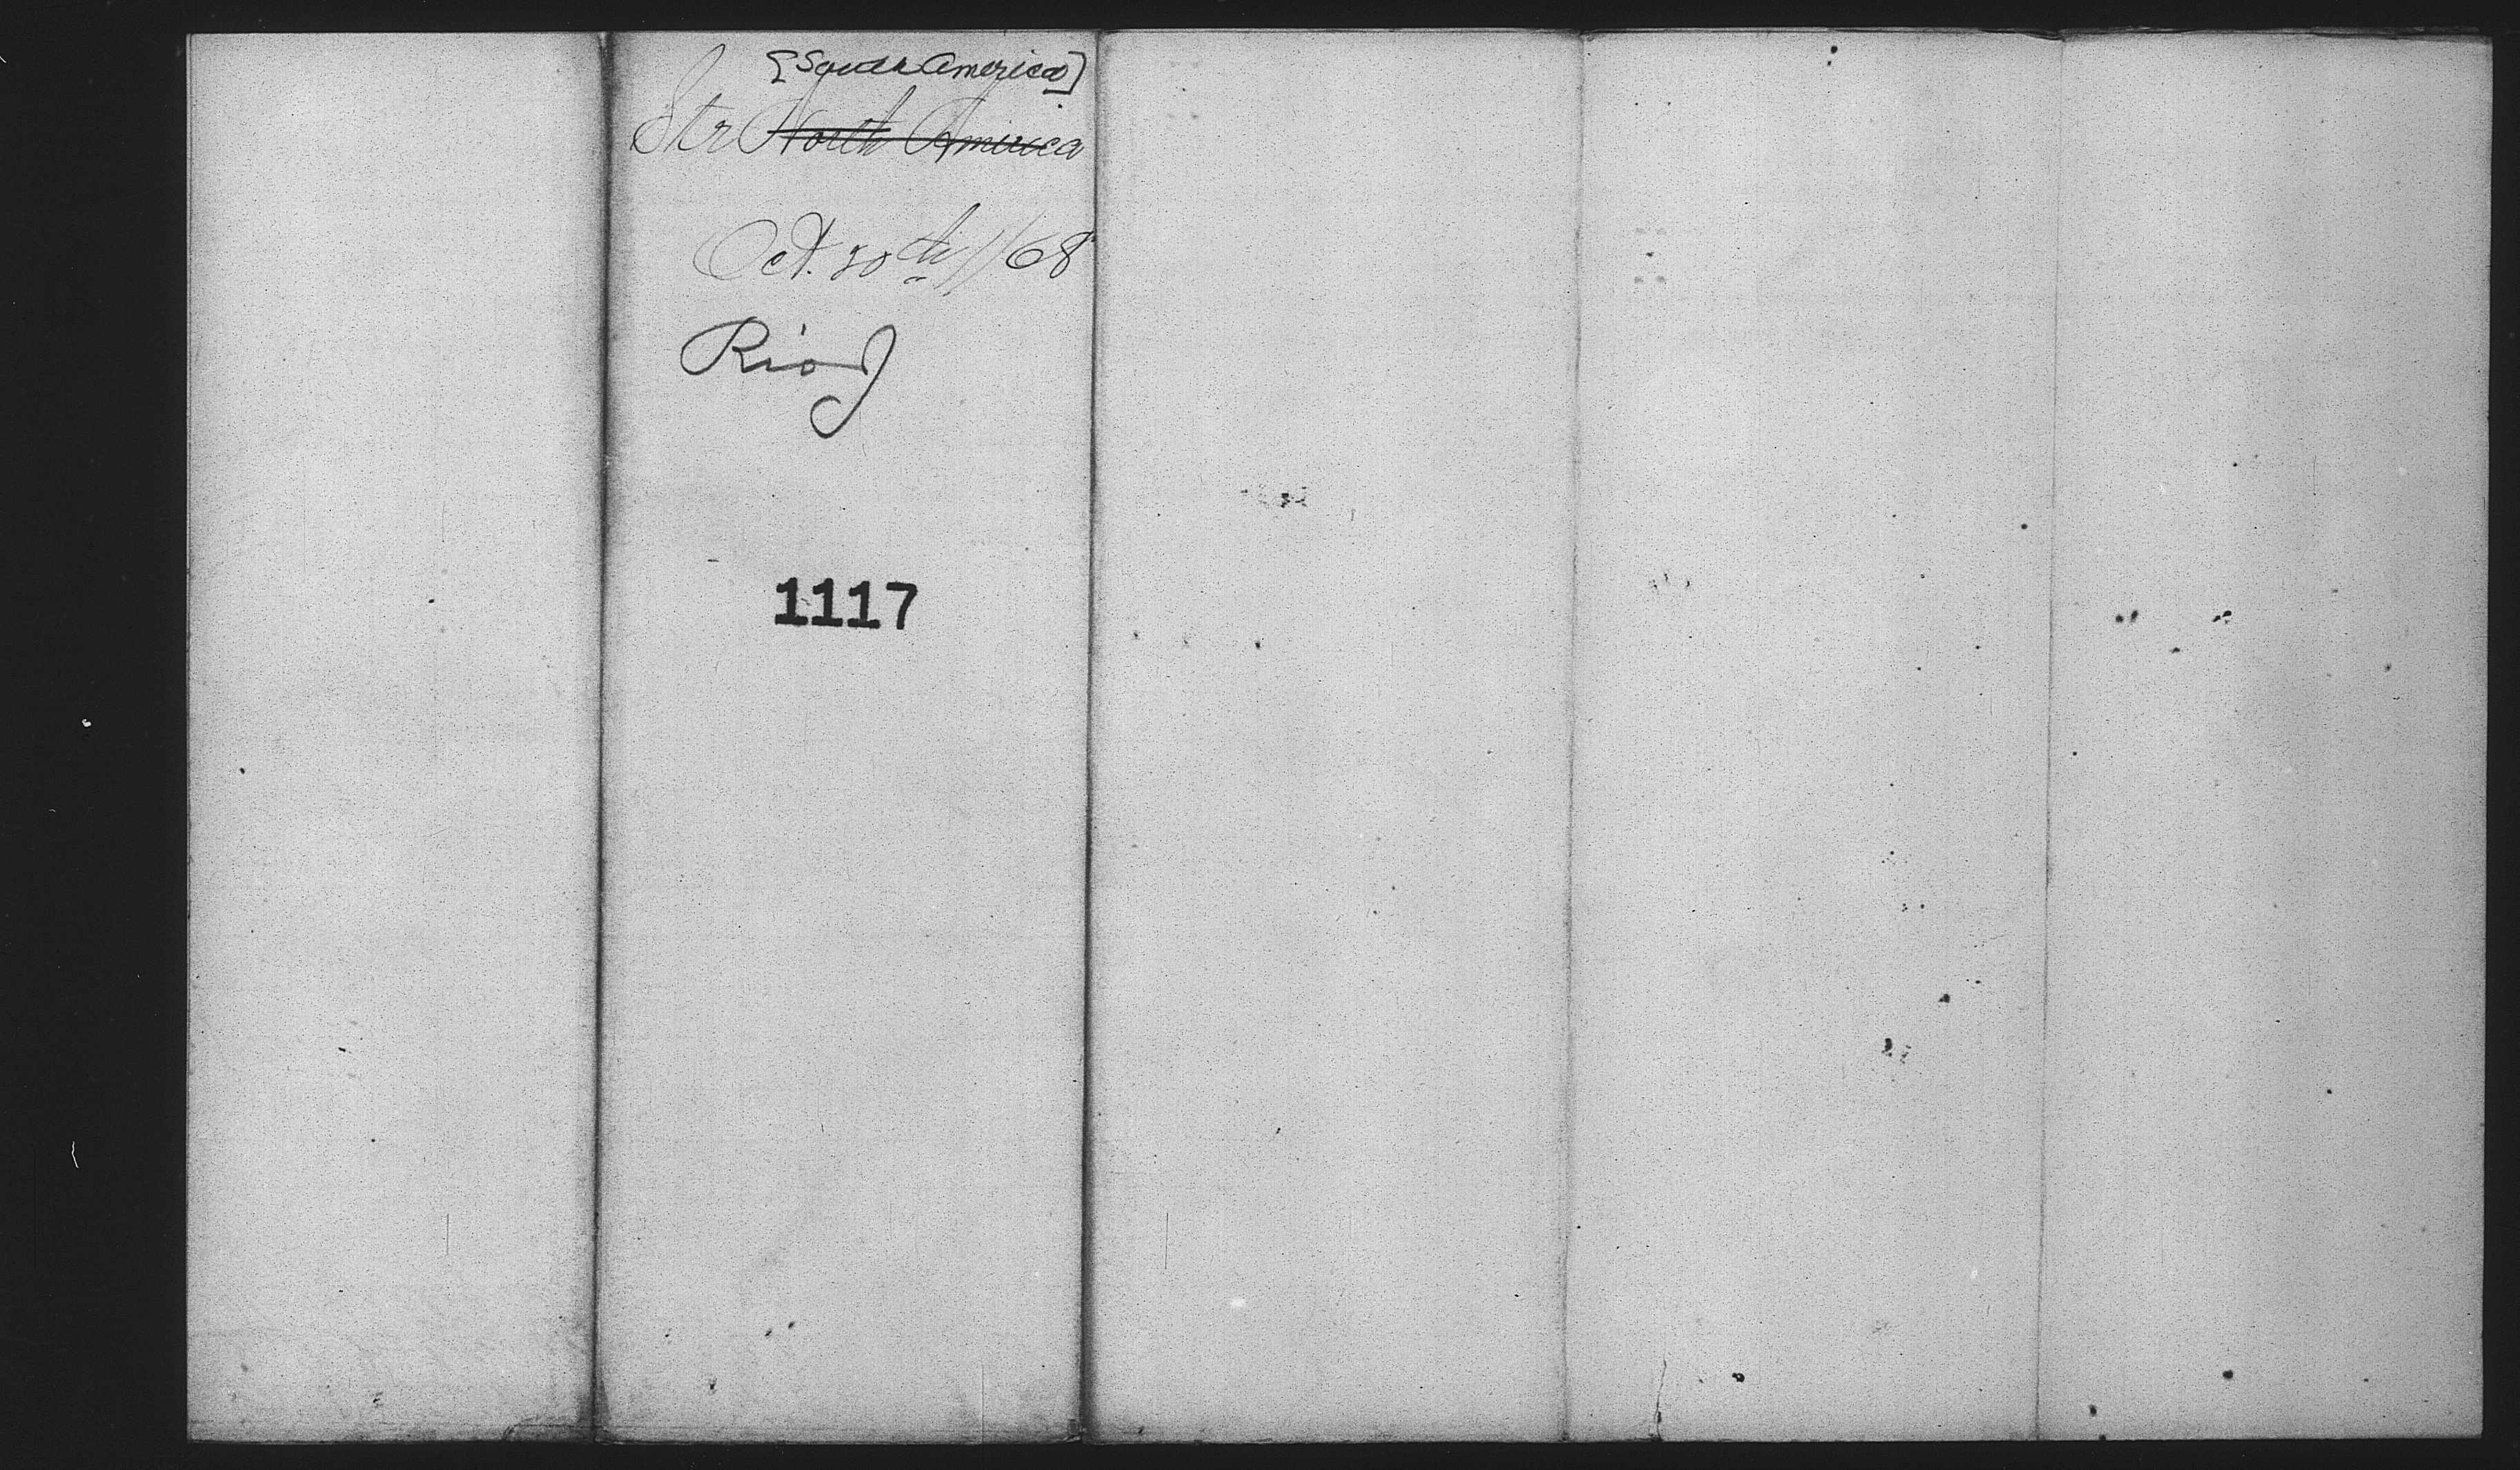 [South America]
Str North America
Oct. 30th //68
Rio J
1117